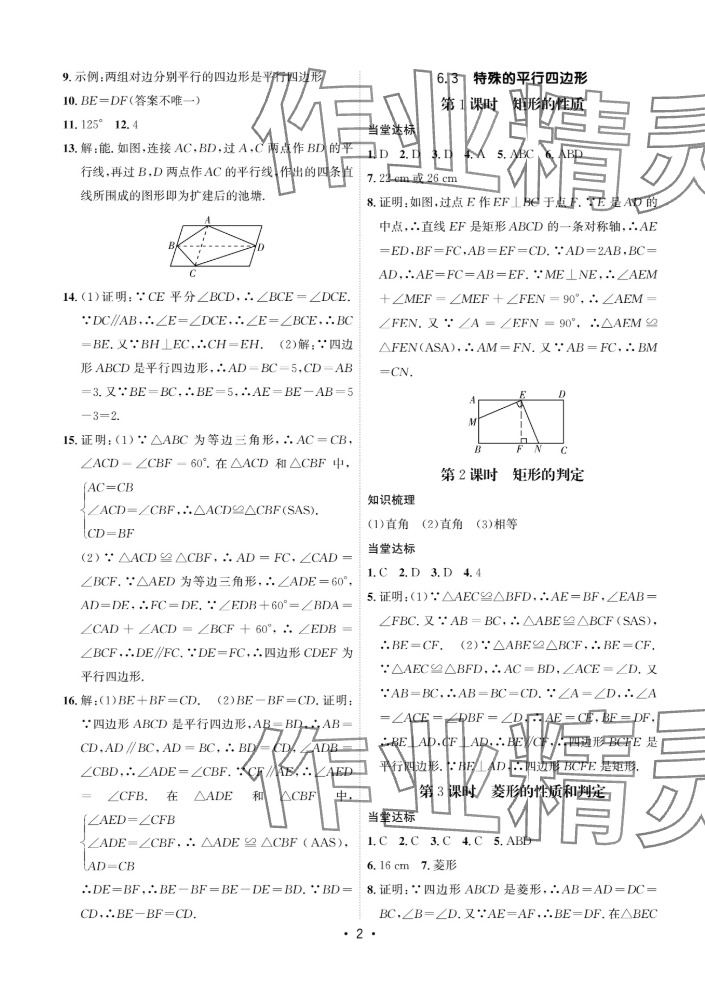 9. 示例:两组对边分别平行的四边形是平行四边形
10. BE=DF(答案不唯一)
11. 125° 12. 4
13. 解:能. 如图,连接 AC,BD,过 A,C 两点作 BD 的平
行线,再过 B,D 两点作 AC 的平行线,作出的四条直
线所围成的图形即为扩建后的池塘.
A
B
D
C
14. (1)证明:∵CE 平分∠BCD,∴∠BCE=∠DCE.
∵DC∥AB,∴∠E=∠DCE,∴∠E=∠BCE,∴BC
=BE. 又∵BH⊥EC,∴CH=EH. (2)解:∵四边
形 ABCD 是平行四边形,∴AD=BC=5,CD=AB
=3. 又∵BE=BC,∴BE=5,∴AE=BE-AB=5
-3=2.
15. 证明:(1)∵△ABC 为等边三角形,∴AC=CB,
∠ACD=∠CBF=60°. 在△ACD 和△CBF 中,
AC=CB
∠ACD=∠CBF,∴△ACD≌△CBF(SAS).
CD=BF
(2)∵△ACD≌△CBF,∴AD=FC,∠CAD=
∠BCF. ∵△AED 为等边三角形,∴∠ADE=60°,
AD=DE,∴FC=DE. ∵∠EDB+60°=∠BDA=
∠CAD+∠ACD=∠BCF+60°,∴∠EDB=
∠BCF,∴DE∥FC. ∵DE=FC,∴四边形 CDEF 为
平行四边形.
16. 解:(1)BE+BF=CD. (2)BE-BF=CD. 证明:
∵四边形 ABCD 是平行四边形,AB=BD,∴AB=
CD,AD∥BC,AD=BC,∴BD=CD,∠ADB=
∠CBD,∴∠ADE=∠CBF. ∵CF∥AE,∴∠AED
=∠CFB. 在△ADE 和△CBF 中,
∠AED=∠CFB
∠ADE=∠CBF,∴△ADE≌△CBF(AAS),
AD=CB
∴DE=BF,∴BE-BF=BE-DE=BD. ∵BD=
CD,∴BE-BF=CD.
6.3 特殊的平行四边形
第 1 课时 矩形的性质
当堂达标
1. D 2. D 3. D 4. A 5. ABC 6. ABD
7. 22 cm 或 26 cm
8. 证明:如图,过点 E 作 EF⊥BC 于点 F. ∵E 是 AD 的
中点,∴直线 EF 是矩形 ABCD 的一条对称轴,∴AE
=ED,BF=FC,AB=EF=CD. ∵AD=2AB,BC=
AD,∴AE=FC=AB=EF. ∵ME⊥NE,∴∠AEM
+∠MEF=∠MEF+∠FEN=90°,∴∠AEM=
∠FEN. 又∵∠A=∠EFN=90°,∴△AEM≌
△FEN(ASA),∴AM=FN. 又∵AB=FC,∴BM
=CN.
A E D
M
B F N C
第 2 课时 矩形的判定
知识梳理
(1)直角 (2)直角 (3)相等
当堂达标
1. C 2. D 3. D 4. 4
5. 证明:(1)∵△AEC≌△BFD,∴AE=BF,∠EAB=
∠FBC. 又∵AB=BC,∴△ABE≌△BCF(SAS),
∴BE=CF. (2)∵△ABE≌△BCF,∴BE=CF.
∵△AEC≌△BFD,∴AC=BD,∠ACE=∠D. 又
∵AB=BC,∴AB=BC=CD. ∵∠A=∠D,∴∠A
=∠ACE=∠DBF=∠D,∴AE=CE,BF=DF,
∴BE⊥AD,CF⊥AD,∴BE∥CF,∴四边形 BCFE 是
平行四边形. ∵BE⊥AD,∴四边形 BCFE 是矩形.
第 3 课时 菱形的性质和判定
当堂达标
1. C 2. C 3. C 4. C 5. ABD
6. 16 cm 7. 菱形
8. 证明:∵四边形 ABCD 是菱形,∴AB=AD=DC=
BC,∠B=∠D. 又∵AE=AF,∴BE=DF. 在△BEC
• 2 •
作业精灵
作业精灵